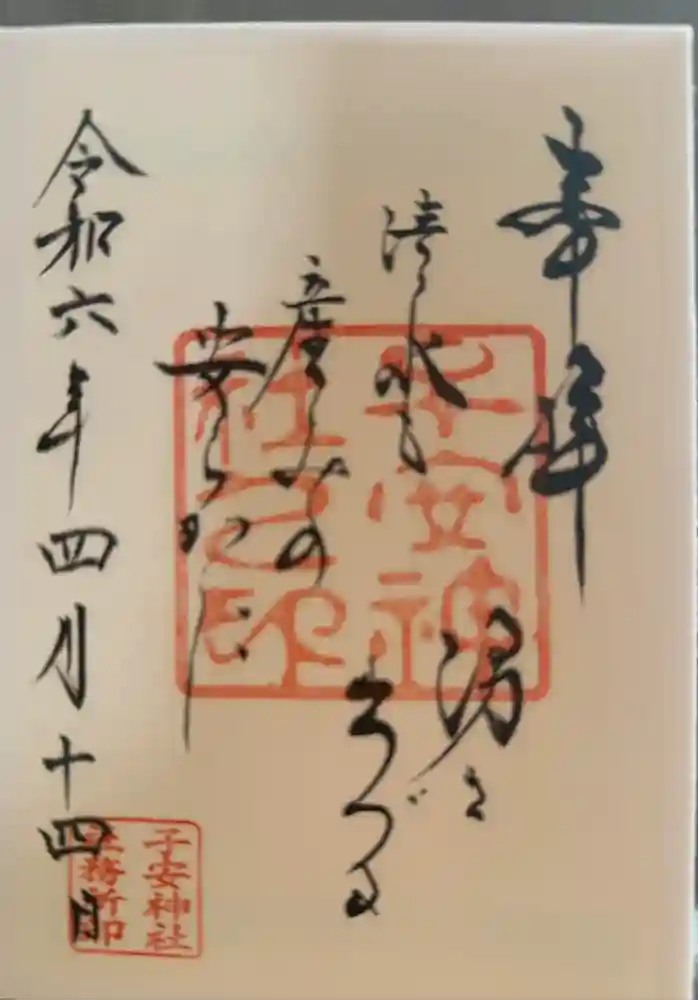 奉拝
湧き
出づる
水
産
みの
安らかに
令和六年四月十四日
子安神
社之印
子安神社
社務所印